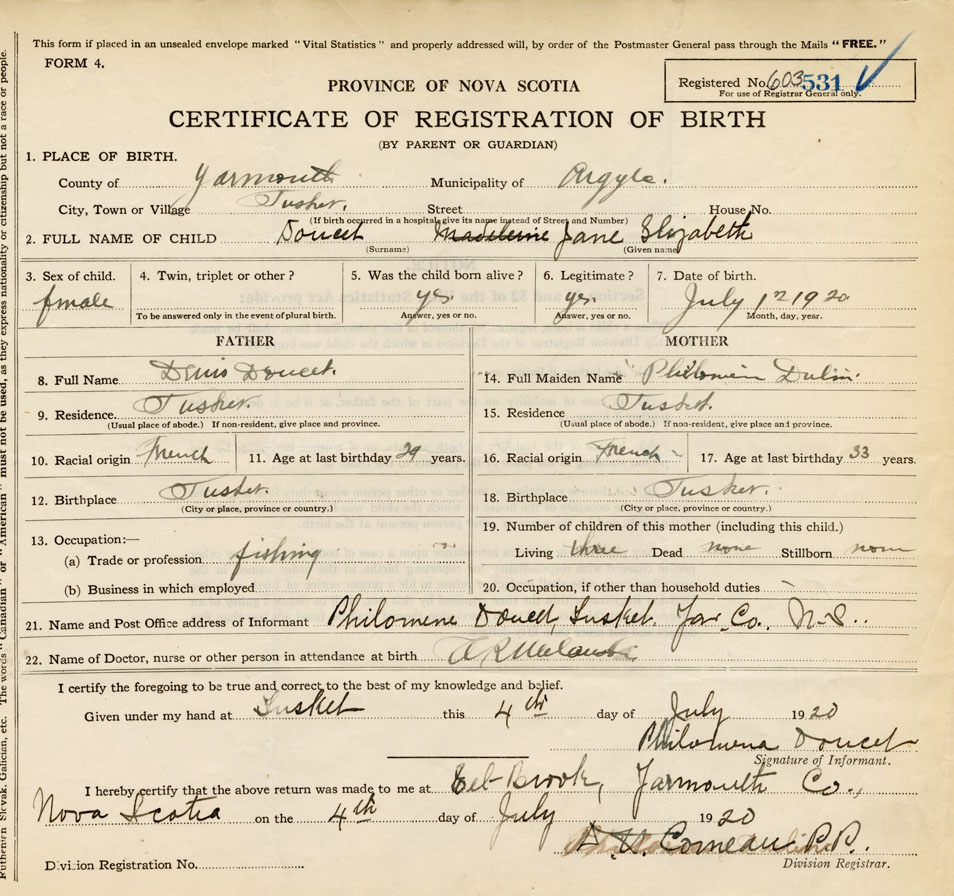 This form if placed in an unsealed envelope marked "Vital Statistics" and properly addressed will, by order of the Postmaster General pass through the Mails "FREE."
FORM 4.
Registered No. 603 531
For use of Registrar General only.
PROVINCE OF NOVA SCOTIA
CERTIFICATE OF REGISTRATION OF BIRTH
(BY PARENT OR GUARDIAN)
1. PLACE OF BIRTH.
County of Yarmouth Municipality of Argyle.
City, Town or Village Tusket. Street House No.
(If birth occurred in a hospital give its name instead of Street and Number)
2. FULL NAME OF CHILD Doucet Madeleine Jane Elizabeth
(Surname) (Given name)
3. Sex of child. 4. Twin, triplet or other? 5. Was the child born alive? 6. Legitimate? 7. Date of birth.
fmale yes. yes. July 1 1920
To be answered only in the event of plural birth. Answer, yes or no. Answer, yes or no. Month, day, year.
FATHER MOTHER
8. Full Name Denis Doucet. 14. Full Maiden Name Philomen
9. Residence. Tusket. 15. Residence Tusket.
(Usual place of abode.) If non-resident, give place and province. (Usual place of abode.) If non-resident, give place and province.
10. Racial origin French 11. Age at last birthday 29 years. 16. Racial origin French 17. Age at last birthday 33 years.
12. Birthplace Tusket. 18. Birthplace Tusket.
(City or place, province or country.) (City or place, province or country.)
13. Occupation:— 19. Number of children of this mother (including this child.)
(a) Trade or profession fishing Living three Dead none Stillborn none
(b) Business in which employed 20. Occupation, if other than household duties
21. Name and Post Office address of Informant Philomene Doucet, Tusket. Yar. Co., N.S..
22. Name of Doctor, nurse or other person in attendance at birth
I certify the foregoing to be true and correct to the best of my knowledge and belief.
Given under my hand at Tusket this 4th day of July 1920
Philomena Doucet
Signature of Informant.
I hereby certify that the above return was made to me at Eel-Brook, Yarmouth Co.,
Nova Scotia on the 4th day of July 1920
Comeau P.P.
Division Registrar.
Division Registration No.
Ruthenian Slovak, Galician, etc. The words "Canadian" or "American" must not be used, as they express nationality or citizenship but not a race or people.